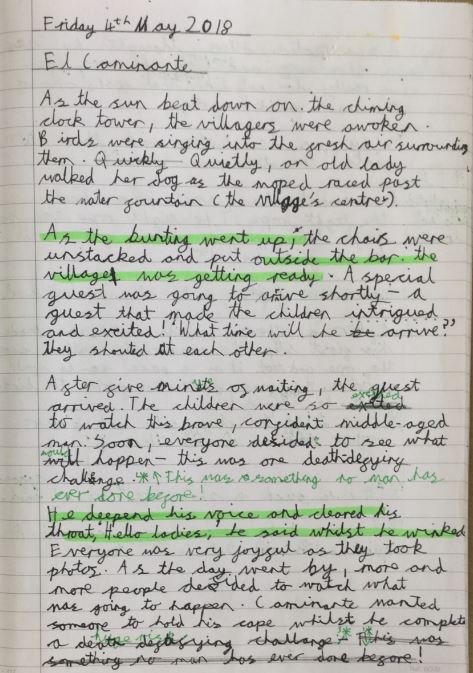 Friday 4th May 2018
El Caminante
As the sun beat down on the chiming
clock tower, the villagers were awoken.
Birds were singing into the fresh air surrounding
them. Quickly Quietly, an old lady
walked her dog as the moped raced past
the water fountain (the village's centre).
As the bunting went up, the chairs were
unstacked and put outside the bar. the
village was getting ready. A special
guest was going to arive shortly - a
guest that made the children intrigued
and excited! What time will he be arrive?"
they shouted at each other.
After five minuts of waiting, the guest
excited
arrived. The children were so exited
to watch this brave, confident middle-aged
man. Soon, everyone desided to see what
would
will happen - this was one death-defying
challenge. *↑ This was something no man has
ever done before!
He deepend his voice and cleared his
throat, Hello ladies, he said whilst he winked
Everyone was very joyful as they took
photos. As the day went by, more and
more people decided to watch what
was going to happen. Caminante wanted
someone to hold his cape whilst he complete
a death defying challenge! * This was
something no man has ever done before!